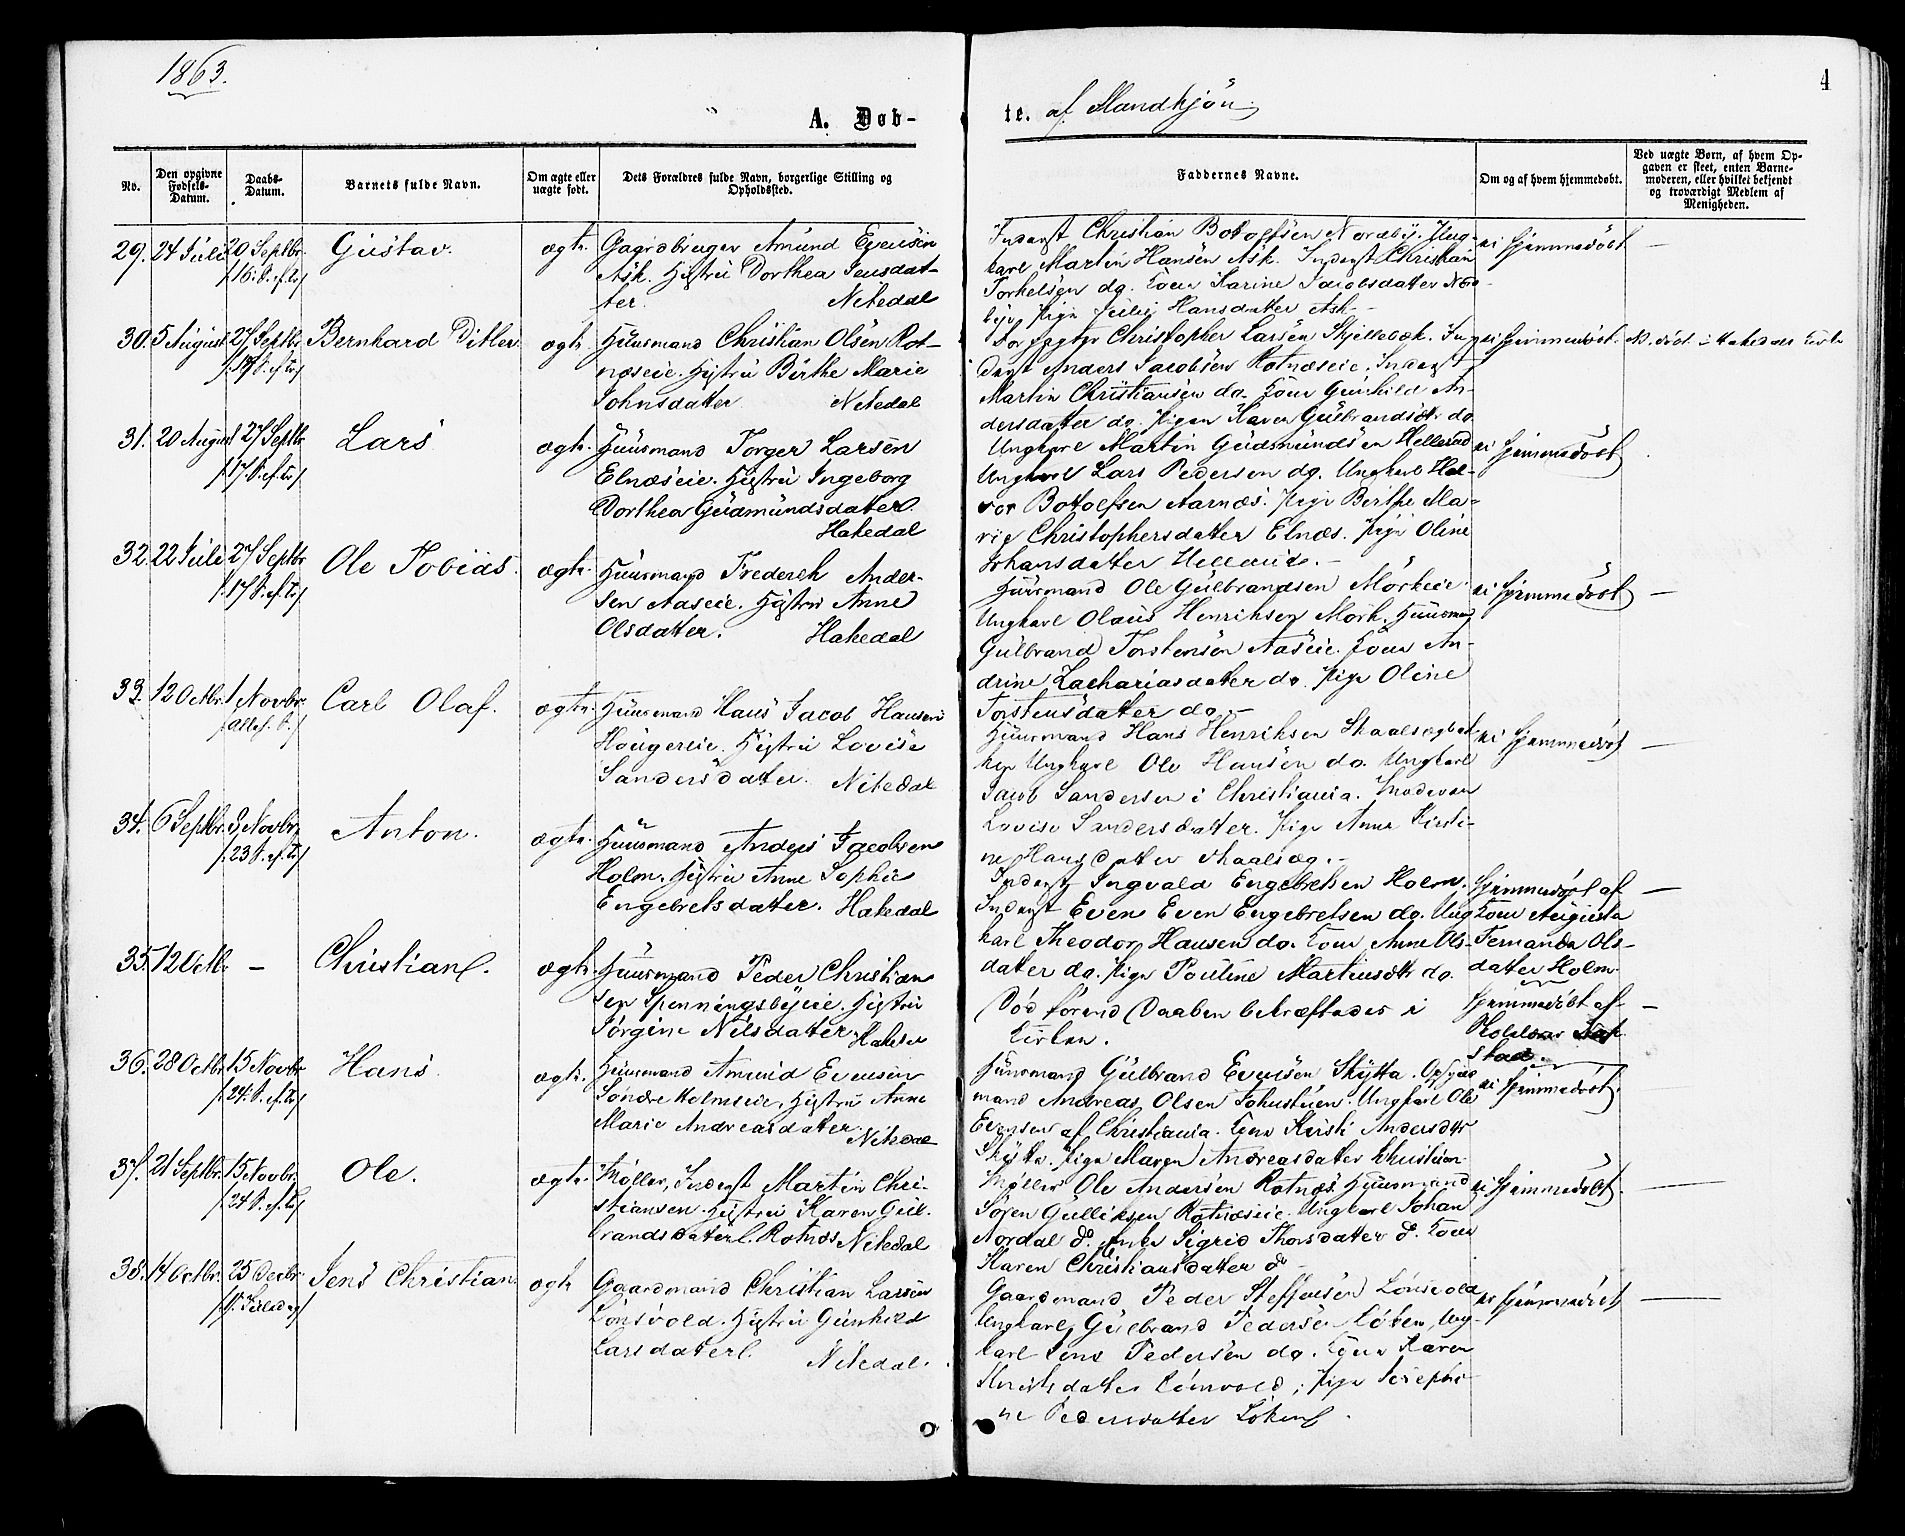 1863.
4
A. Døb-
te. af Mandkjön.
No.
Den opgivne Fødsels-Datum.
Daabs-Datum.
Barnets fulde Navn.
Om ægte eller uægte født.
Dets Forældres fulde Navn, borgerlige Stilling og Opholdssted.
Faddernes Navne.
Om og af hvem hjemmedøbt.
Ved uægte Børn, af hvem Opgaven er skeet, enten Barnemoderen, eller hvilket bekjendt og troværdigt Medlem af Menigheden.
29. 24 Juli 20 Septbr. Gustav. ægte. Amund Evensen
16. S. ef. Tr. Ask. Hustru Dorthea Jensdat-
ter. Nitedal
Inderst Christian Botolfsen Ung-
karl Martin Hansen Ask. Inderst Christian
Torkelsen do. Kone Karine Jacobsdatter
Pige Hansdatter Ask.
ei hjemmedöbt —
30. 5 August 27 Septbr. Bernhard Ditlev ægte. Huusmand Christian Olsen Rot-
17 S. ef. Tr. næseie. Hustru Birthe Marie
Johnsdatter Nitedal
Christopher Larsen Skjellebæk.
Anders Jacobsen Rotnæseie. Inderst
Martin Christiansen do. Kone Gunhild An-
dersdatter do. Pigen Karen Gulbrandsdtr. do
ei hjemmedöbt.
31. 20 August 27 Septbr. Lars ægte. Huusmand Torger Larsen
17. S. ef. Tr. Elnæseie. Hustru Ingeborg
Dorthea Gudmundsdatter.
Hakedal
Ungkarl Martin Gudmundsen
Ungkarl Lars Pedersen do. Ungkarl Hal-
vor Botolfsen Aarnæs. Pige Berthe Ma-
rie Christophersdatter Elnæs. Pige Oline
Johansdatter
ei hjemmedöbt
32. 22 Juli 27 Septbr. Ole Tobias. ægte. Huusmand Frederch Ander-
17 S. ef. Tr. sen Aaseie. Hustru Anne
Olsdatter. Hakedal
Huusmand Ole Gulbrandsen Mörkeie.
Ungkarl Olaus Henriksen Mörk. Huusmand
Gulbrand Torstensen Aaseie. Kone An-
drine Zachariasdatter do. Pige Oline
Torstensdatter do. —
ei hjemmedöbt —
33. 12 Octbr. 1 Novbr. Carl Olaf. ægte. Huusmand Hans Jacob Hansen
Alleh. D. Hougereie. Hustru Lovise
Sandersdatter. Nitedal
Huusmand Hans Henriksen
Ungkarl Ole Hansen do. Ungkarl
Jacob Sandersen i Christiania.
Lovise Sandersdatter. Pige Anne Kirsti-
ne Hansdatter
ei hjemmedöbt —
34. 6 Septbr. 8 Novbr. Anton. ægte. Huusmand Anders Jacobsen
23 S. ef. Tr. Holm. Hustru Anne Sophie
Engebretsdatter. Hakedal
Inderst Ingvald Engebretsen Holm.
Inderst Even Even Engebretsen do. Ung
karl Theodor Hansen do. Kone Anne Ols-
datter do. Pige Pouline Martinsdtr do.
Hjemmedöbt af
Kone Augusta
Fernanda Ols-
datter Holm. —
35. 12 Octb. — Christian. ægte. Huusmand Peder Christian
sen Spenningsbyeie. Hustru
Jörgine Nilsdatter.
Död förend Daaben bekræftedes i
Kirken.
Hjemmedöbt af —
36. 28 Octbr. 15 Novbr. Hans ægte. Huusmand Amund Evensen
24. S. ef. Tr. Söndre Holmseie. Hustru Anne
Marie Andreasdatter. Nitedal
Huusmand Gulbrand Evensen Skytta.
mand Andreas Olsen Ungkarl Ole
Evensen af Christiania. Kone Kirsti Andersdtr
Skytta. Pige Maren Andreasdatter
ei hjemmedöbt.
37. 21 Septbr. 15 Novbr. Ole. ægte. Möller, Inderst Martin Chri-
24 S. ef. Tr. stiansen. Hustru Karen Gul-
brandsdatter. Rotnæs Nitedal
Möller Ole Andersen Rotnæs. Huusmand
Sören Gulliksen Rotnæseie. Ungkarl Johan
Nordal do. Enke Sigrid Thorsdatter do. Kone
Karen Christiansdatter do
ei hjemmedöbt. —
38. 14 Octbr. 25 Decbr. Jens Christian ægte Gaardmand Christian Larsen
1. Juledag Lönsvold. Hustru Gunhild
Larsdatter. Nitedal.
Gaardmand Peder Steffensen Lönsvold
Ungkarl Gulbrand Pedersen Löken, Ung-
karl Jens Pedersen do. Kone Karen
datter Lönsvold; Pige Josephi-
ne Pedersdatter Löken.
ei hjemmedöbt —